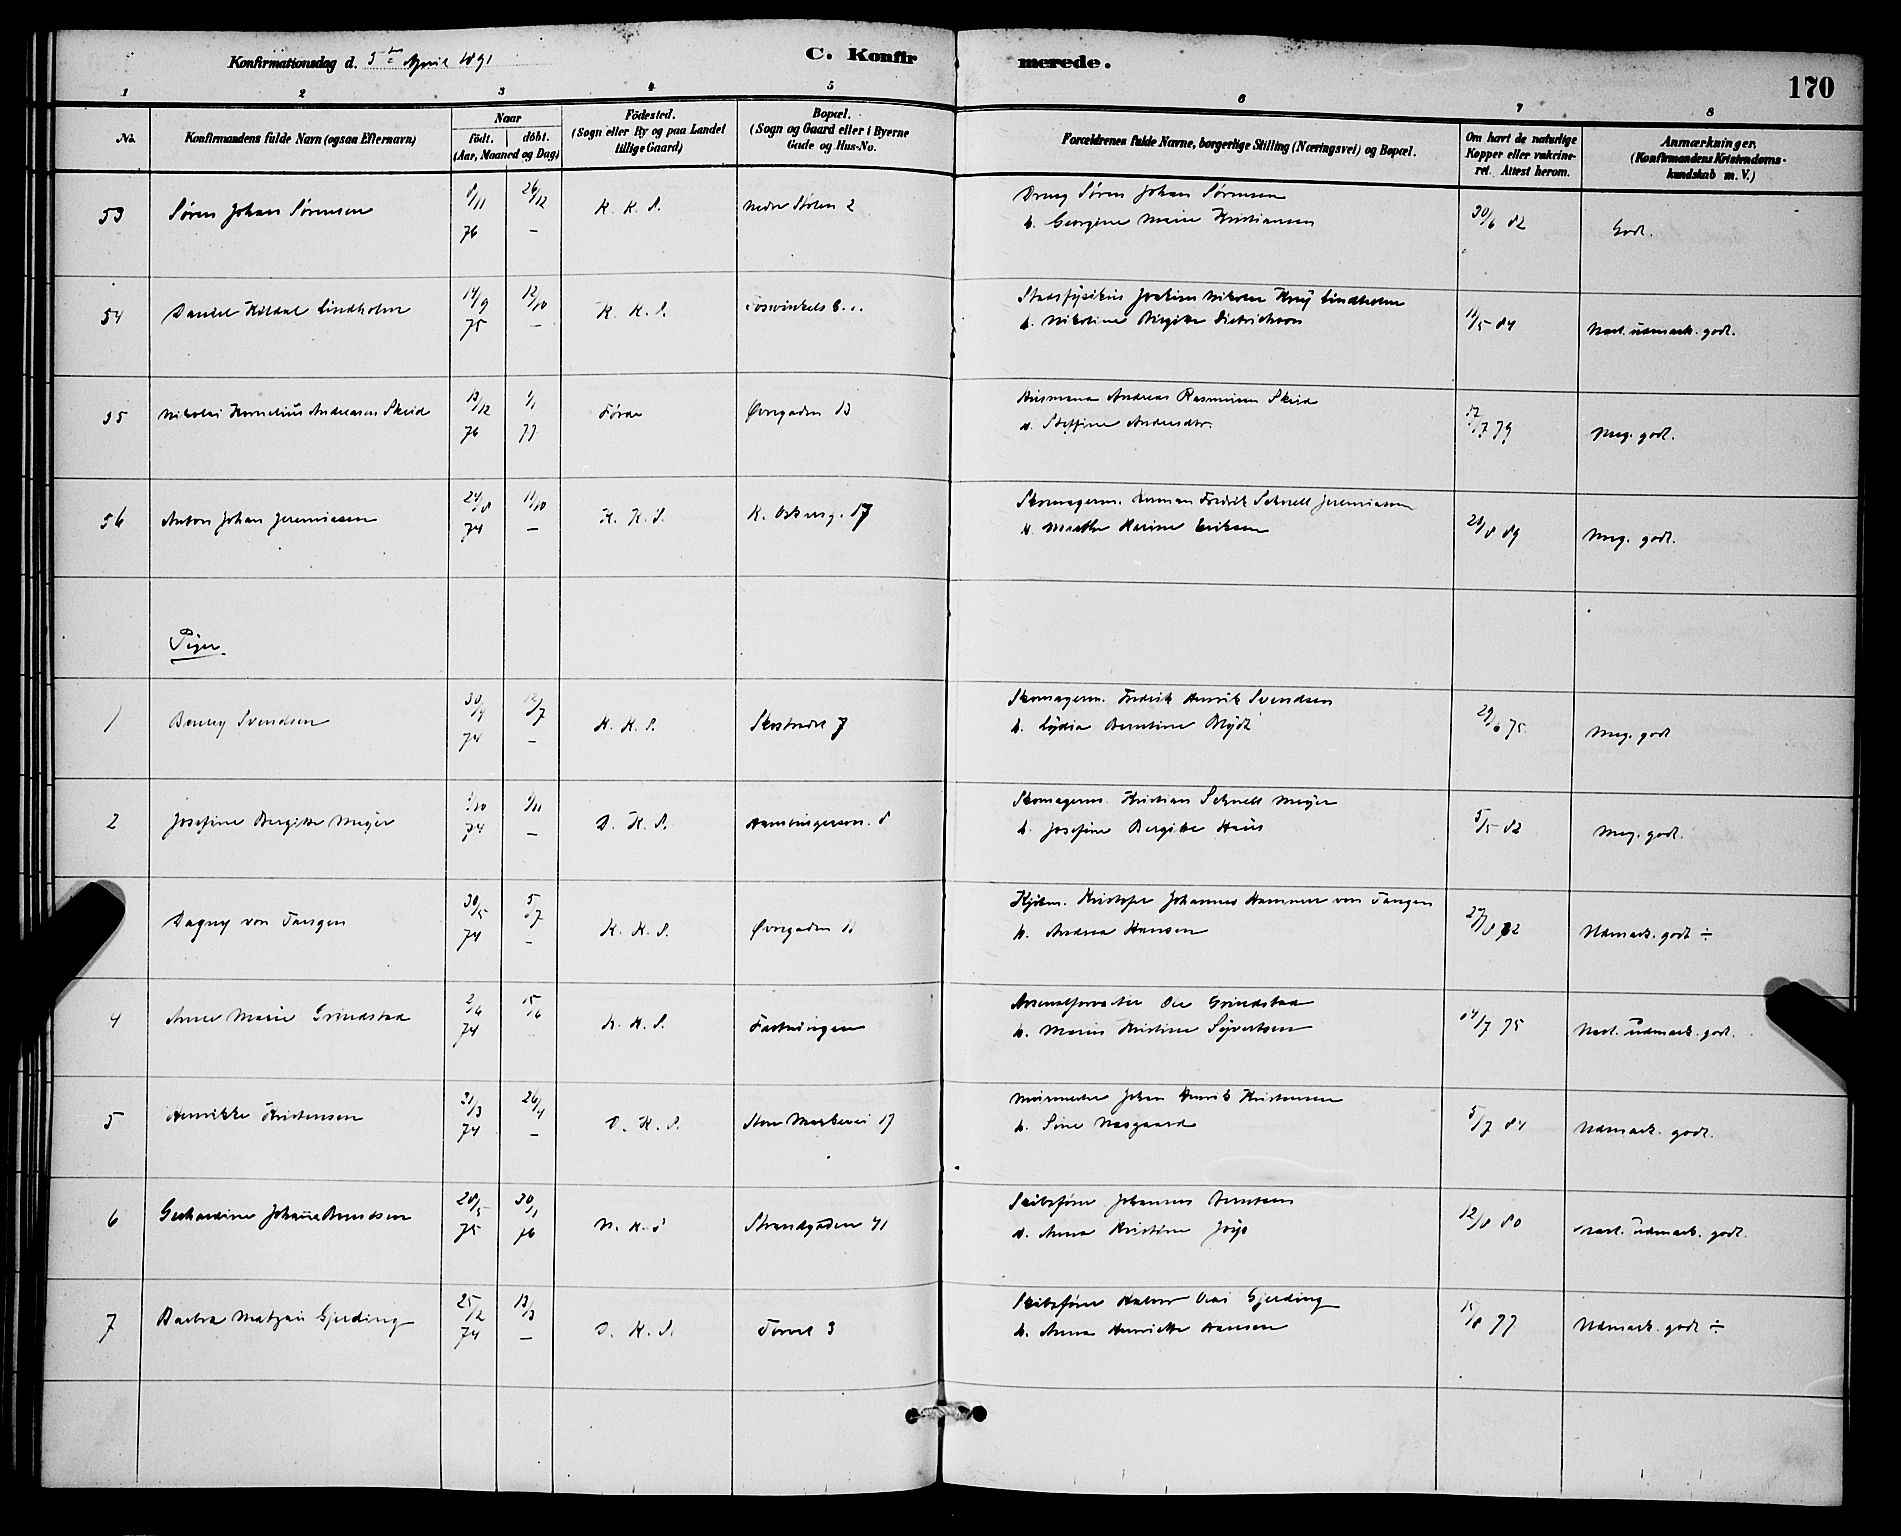 Konfirmationsdag d. 5te April 1891
C. Konfir
merede.
170
1 2 3 4 5 6 7 8
No.
Konfirmandens fulde Navn (ogsaa Efternavn)
Naar
födt. döbt.
(Aar, Maaned og Dag)
Födested.
(Sogn eller By og paa Landet
tillige Gaard)
Bopæl.
(Sogn og Gaard eller i Byerne
Gade og Hus-No.
Forældrenes fulde Navne, borgerlige Stilling (Næringsvei) og Bopæl.
Om havt de naturlige
Kopper eller vakcine-
ret. Attest herom.
Anmærkninger.
(Konfirmandens Kristendoms-
kundskab m. V.)
53 Søren Johan Sørensen 8/11 76 26/12 – K. K. S. Nedre Stølen 2
Søren Johan Sørensen
h. Georgine Marie Kristiansen 30/6 82 Godt.
54 Daniel Kildal Lindholm 14/9 75 12/10 – K. K. S.
Stadsfysikus Joakim Nikolai Krüj Lindholm
h. Nikoline Birgitte Dietrichson 11/5 84 Næst. udmærk. godt.
55 Nikolai Kornelius Andreasen Skeid 13/12 76 1/1 77 Førde Øvregaden 13
Husmand Andreas Rasmussen Skeid
h. Steffine Andersdtr. 17/7 79 Meg. godt.
56 Anton Johan Jeremiasen 24/8 74 11/10 – K. K. S. K. Oskarsg. 17
Skomagerm. Herman Fredrik Schnell Jeremiasen
h. Marthe Karine Eriksen 28/8 89 Meg. godt.
Piger.
1 Benny Svendsen 30/4 74 12/7 – K. K. S. Skostrædet 7
Skomagerm. Fredrik Henrik Svendsen
h. Lydia Berntine Blydt 29/6 75 Meg. godt
2 Josefine Bergitte Meyer 1/10 74 1/11 – D. K. S. 8
Skomagerm. Kristian Schnell Meyer
h. Josefine Bergitte Haus 5/5 82 Meg. godt.
Dagny von Tangen 30/5 74 5/7 – K. K. S. Øvregaden
Kjøbm. Kristofer Johannes Hammer von Tangen
h. Andrea Hansen 27/8 82 Udmærk. godt ÷
4 Anne Marie Grindstad 2/4 74 15/6 K. K. S. Fæstningen
Arsenalforvalter Ole Grindstad
h. Maren Kristine Syvertsen 14/7 75 Næst. udmærk. godt.
5 Henrikke Kristensen 31/3 74 26/4 – D. K. S. Store Markevei 17
Murmester Johan Henrik Kristensen
h. Sine Næsgaard 5/7 84 Udmærk. godt.
6 Gerhardine Johanne Berntsen 28/5 75 30/1 76 N. K. S Strandgaden 41
Skibsfører Johannes Berntsen
h. Anna Kristine 12/8 80 Næst. udmærk. godt.
7 Barbra Matzau Gjerding 25/2 74 13/3 – D. K. S. Torvet 3
Skibsfører Halvor Olai Gjerding
h. Anna Henriette Hansen 15/8 77 Udmærk. godt ÷